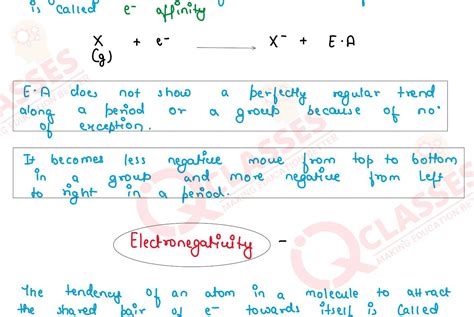 is called e⁻ affinity
X + e⁻ → X⁻ + E·A
(g)
E·A does not show a perfectly regular trend
along a period or a group because of no·
of exception.
It becomes less negative move from top to bottom
in a group and more negative from left
to right in a period.
Electronegativity -
The tendency of an atom in a molecule to attract
the shared pair of e⁻ towards itself is called
IQ CLASSES
MAKING EDUCATION